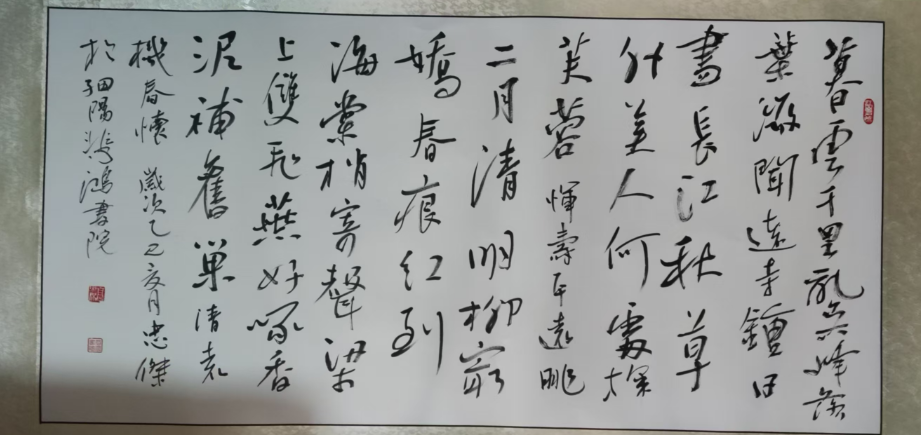 暮雲千里亂吳峰落
葉微聞遠寺鐘目
盡長江秋草
外美人何處採
芙蓉 惲壽平遠眺
二月清明柳最
嬌春痕紅到
海棠梢寄聲梁
上雙飛燕好啄香
泥補舊巢 清袁
機春懷 歲次乙巳夏月忠傑
於細陽鴻書院